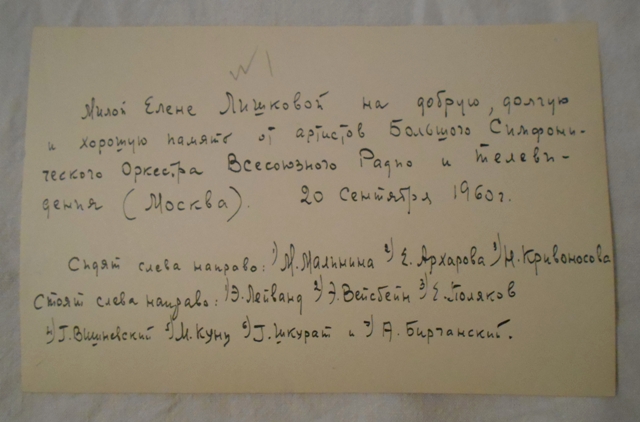 №1
Милой Елене Лишковой на добрую, долгую
и хорошую память от артистов Большого Симфони-
ческого Оркестра Всесоюзного Радио и телеви-
дения (Москва). 20 сентября 1960г.
Сидят слева направо: 1) М. Малинина 2) Е. Архарова 3) Н. Кривоносова
Стоят слева направо: 1) Э. Лейванд 2) Э. Вейсбейн 3) Е. Поляков
4) Г. Вишневский 5) М. Кунц 6) Г. Шкурат и 7) А. Бирчанский.